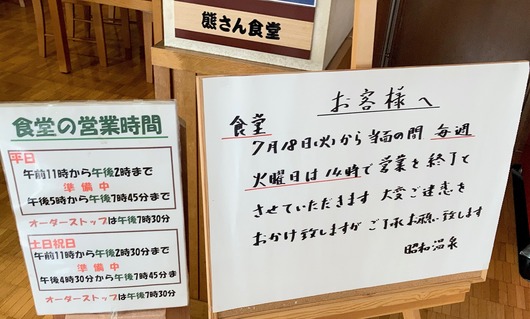 熊さん食堂
食堂の営業時間
平日
午前11時から午後2時まで
準備中
午後5時から午後7時45分まで
オーダーストップは午後7時30分
土日祝日
午前11時から午後2時30分まで
準備中
午後4時30分から午後7時45分ま
オーダーストップは午後7時30分
お客様へ
食堂
7月18日(火)から当面の間 毎週
火曜日は14時で営業を終了と
させていただきます 大変ご迷惑を
おかけ致しますが ご了承お願い致します
昭和温泉